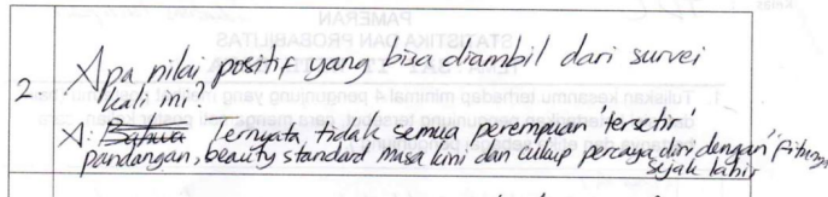 2. Apa nilai positif yang bisa diambil dari survei
kali ini?
A: Bahwa Ternyata, tidak semua perempuan "tersetir"
pandangan, beauty standard masa kini dan cukup percaya diri dengan
sejak lahir